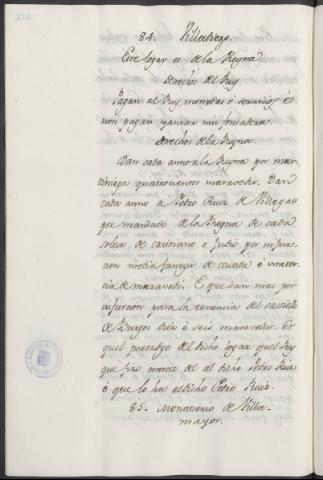 84. Villadiego.
Este logar es de la Reyna
derechos del Rey
Pagan al Rey monedas é servicios é
non pagan yantar nin fonsadera.
derechos de la Reyna.
Dan cada anno a la Reyna por mar-
tiniega quatrocientos maravedis. Dan
cada anno a Pedro Ruiz de Villegas
por mandado de la Reyna de cada
solar de cristiano e Judio por infurc-
cion media fanega de cevada é una ter-
cia de maravedi. E que dan mas por
infurcion para la tenencia del castiello
de Urdrogos dies é seis maravedis. Et
quel portadgo del dicho logar quel Rey
que fiso merced del al dicho Pedro Ruiz
é que lo ha el dicho Pedro Ruiz.
85. Monasterio de Villa-
mayor.